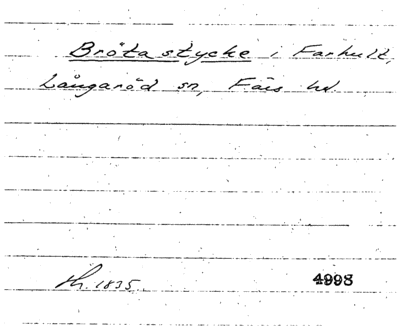 Bröta stycke i Farhult,
Långaröd sn, Färs hd.
sk. 1835. 4998